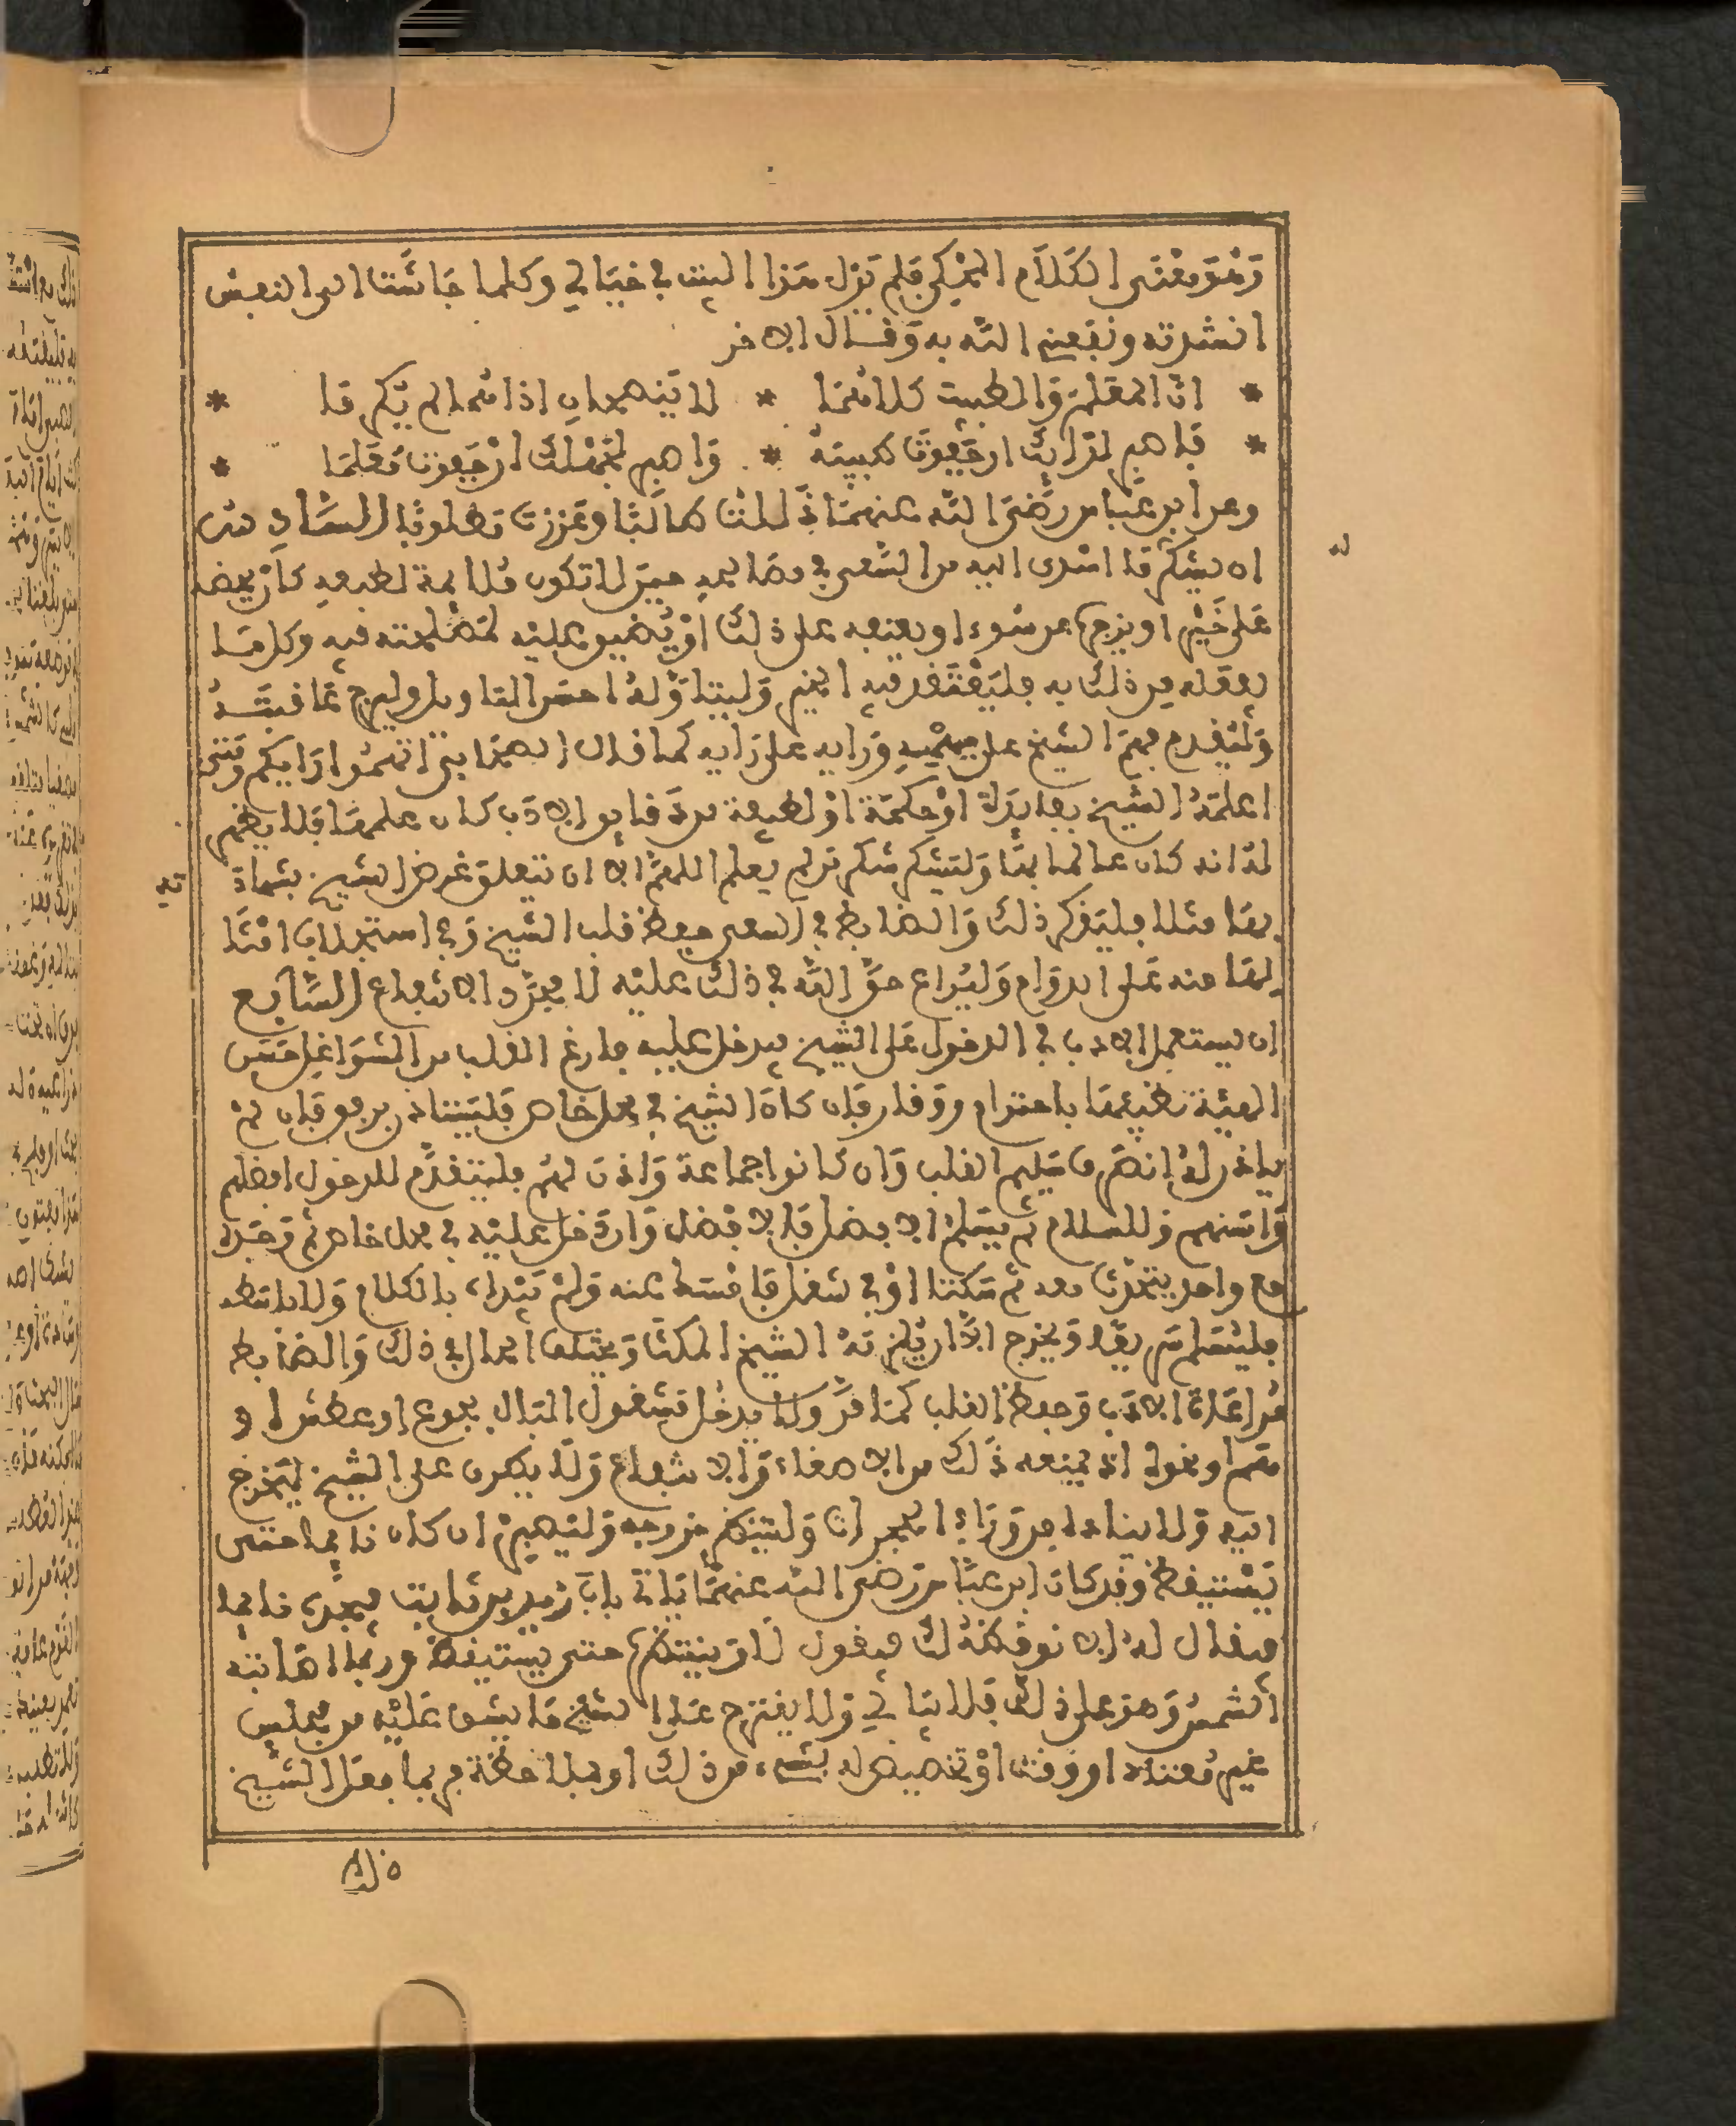 وهو معنى الكلام المحكي فلم يزل هذا البيت في خيالي وكلما جاشت الى النفس
انشدته ونفعني الله به وقال الاخر
* ان المعلم والطبيب كلاهما * لا ينصحان اذا هما لم يكرما *
* فاصبر لدائك ان جفوت طبيبه * واصبر لجهلك ان جفوت معلما *
وعن ابن عباس رضي الله عنهما ذللت طالبا وعززت مطلوبا السادس
ان يشكر ما اسدى اليه من السعي في مصالحه حين لا تكون ملايمة لطبعه كان يحضه
على خير او يزجره عن سوء او يعنفه على ذلك او يضيق عليه لمصلحته فيه وكل ما
يفعله من ذلك به فليعتقد فيه الخير وليتاول له احسن التاويل وليرج عاقبته
وليقدم فهم الشيخ على فهمه ورايه على رايه كما قال الصحابي اتهموا رايكم ومتى
اعلمه الشيخ بفايدة او حكمة او لطيفة من دقايق الادب كان علمها فلا يظهر
له انه كان عالما بها وليشكر شكر من لم يعلم اللهم الا ان تتعلق غرض الشيخ بشهادة
بها مثلا فليذكر ذلك والضابط في السعي حفظ قلب الشيخ وفي استجلاب امثا
لها منه على الدوام وليراع حق الله في ذلك عليه لا مجرد الانتفاع السابع
ان يستعمل الادب في الدخول على الشيخ فيدخل عليه فارغ القلب من الشواغل حسن
الهيئة نظيفها باحترام ووقار فان كان الشيخ في محل خاص فليستاذن برفق فان لم
ياذن له انصرف سليم القلب وان كانوا جماعة واذن لهم فليتقدم للدخول افضلهم
واسنهم وللسلام ثم يسلم الافضل فالافضل وان دخل عليه في محل خاص ثم وجده
مع واحد يتحدث معه ثم سكت او في شغل فامسك عنه ولم يبداه بالكلام ولا باسطه
فليسلم سريعا ويخرج الا ان يلزمه الشيخ المكث ويختلف الحال في ذلك والضابط
مراعاة الادب وحفظ القلب كما مر وكذا لا يدخل مشغول البال بجوع او عطش او
هم او نحوه اذ يمنعه ذلك من الاصغاء والانتفاع ولا يكرر على الشيخ ليخرج
اليه ولا يناده من وراء الحجرات ولينتظر خروجه وليصبر ان كان نايما حتى
يستيقظ وقد كان ابن عباس رضي الله عنهما ياتي باب زيد بن ثابت فيجده نايما
فيقال له الا نوقظه لك فيقول لا وينتظر حتى يستيقظ وربما اصابته
الشمس وهو على ذلك فلا يبالي ولا يقترح على الشيخ ما يشق عليه من مجلس
غير معتاد او وقت او تخصيص له بشيء من ذلك او ملاحظة فربما يفعل الشيخ
ذلك